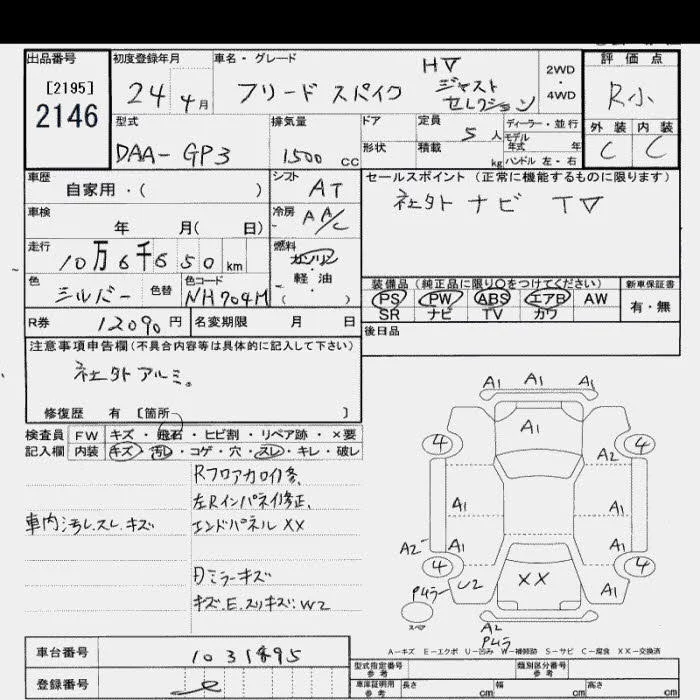 出品番号
[2195]
2146
初度登録年月
24 4月
車名・グレード
フリード スパイク
H▽
ジャスト
セレクション
2WD
・
4WD
評価点
R小
外装 内装
C C
型式
DAA-GP3
排気量
1500 cc
ドア
形状
定員
5人
積載
kg
ディーラー・並行
モデル
年式 年
ハンドル 左・右
車歴
自家用・( )
シフト
AT
セールスポイント(正常に機能するものに限ります)
社外 ナビ T▽
車検
年 月( 日)
冷房
AA/C
走行
10万6千650km
燃料
ガソリン
・
軽油
( )
色
シルバー
色替
色コード
NH704M
装備品(純正品に限り○をつけてください)
PS PW ABS エアB AW
SR ナビ TV カワ
新車保証書
有・無
R券
12090円
名変期限 月 日
後日品
注意事項申告欄(不具合内容等は具体的に記入して下さい)
社外アルミ。
修復歴 有 [箇所 ]
検査員 FW キズ・飛石・ヒビ割・リペア跡・×要
記入欄 内装 キズ・汚レ・コゲ・穴・スレ・キレ・破レ
車内汚レ.スレ.キズ
Rフロアカロイ修、
左Rインパネイ修正、
エンドパネルXX
日ミラーキズ
キズ.E.スリキズ.W2
A1 A1 A1
A1
4 4
A2
A1 A1
A2 A1 A1
4 4
Pムラ U2 XX A1
スペア
A2
Pムラ
A-キズ E-エクボ U-凹み W-補修跡 S-サビ C-腐食 XX-交換済
車台番号
1031895
登録番号
型式指定番号
参考
類別区分番号
参考
車庫証明用
参考
長さ cm 幅 cm 高さ cm